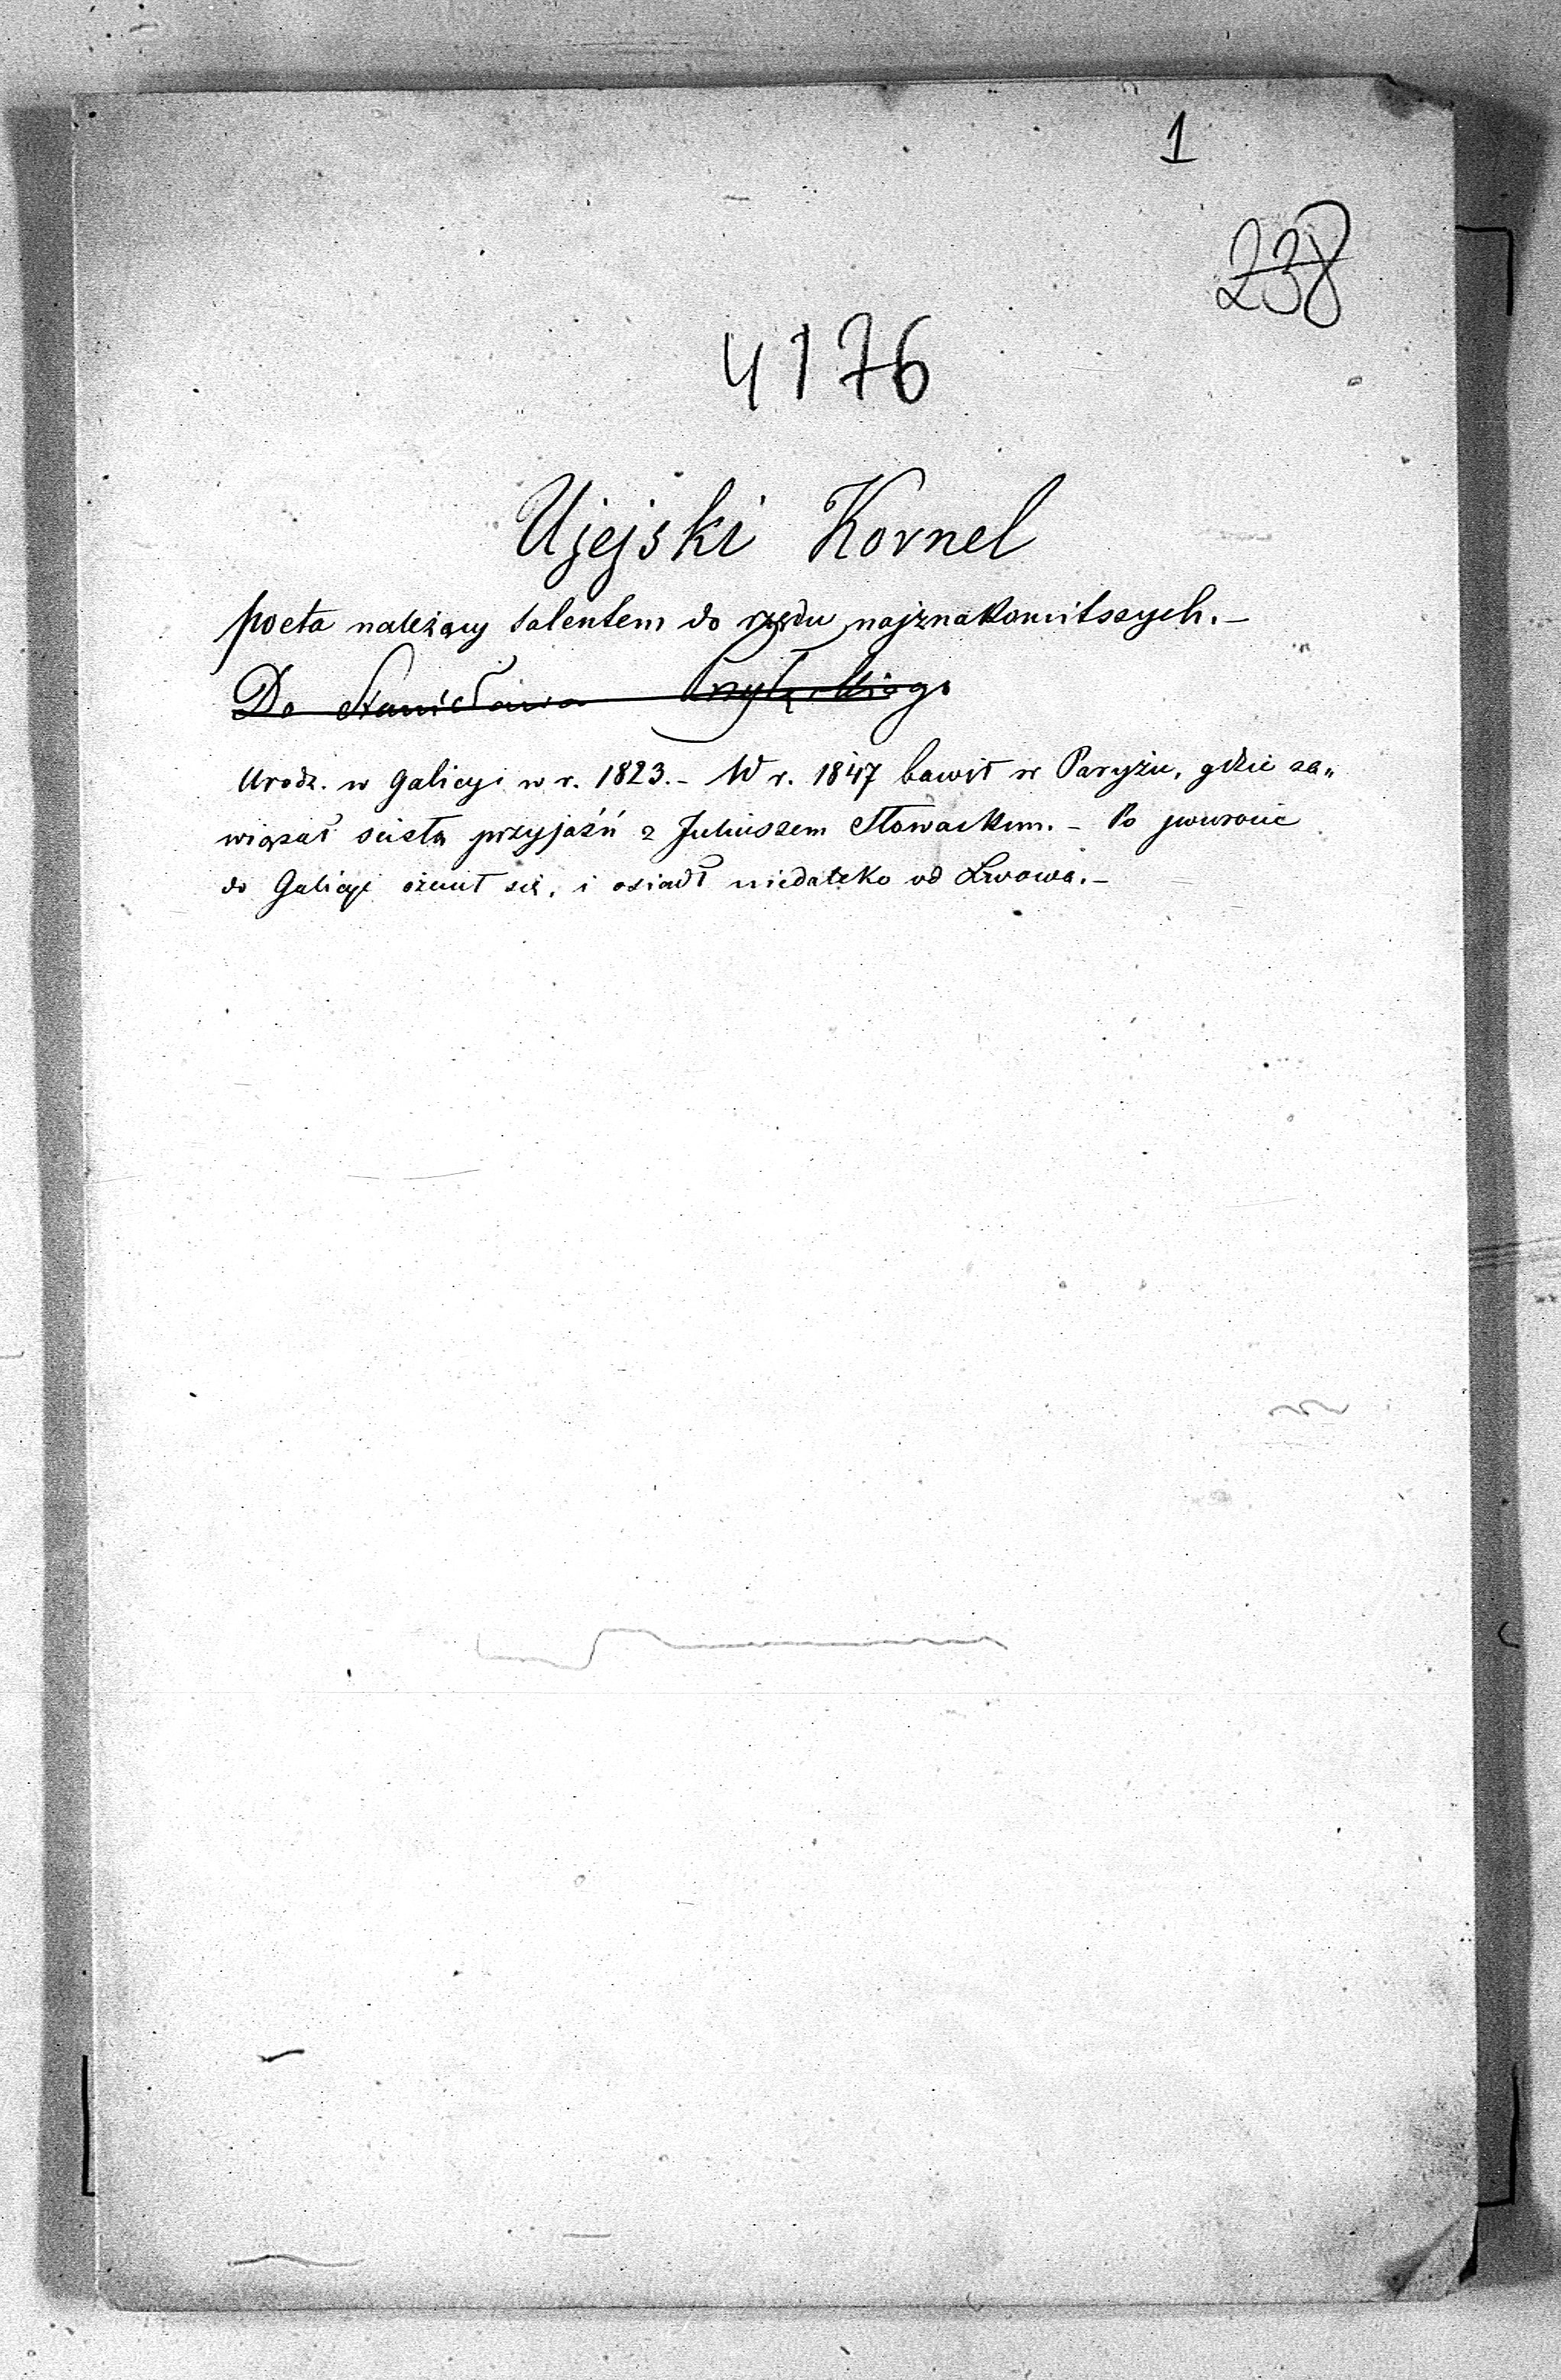 1
238
4176
Ujejski Kornel
poeta należący talentem do rzędu najznakomitszych. –
Do Stanisława Przyłęckiego
Urodz. w Galicyi w r. 1823. – W r. 1847 bawił w Paryżu, gdzie za„
wiązał ścisłą przyjaźń z Juliuszem Słowackim. – Po powrocie
do Galicyi ożenił się, i osiadł niedaleko od Lwowa. –